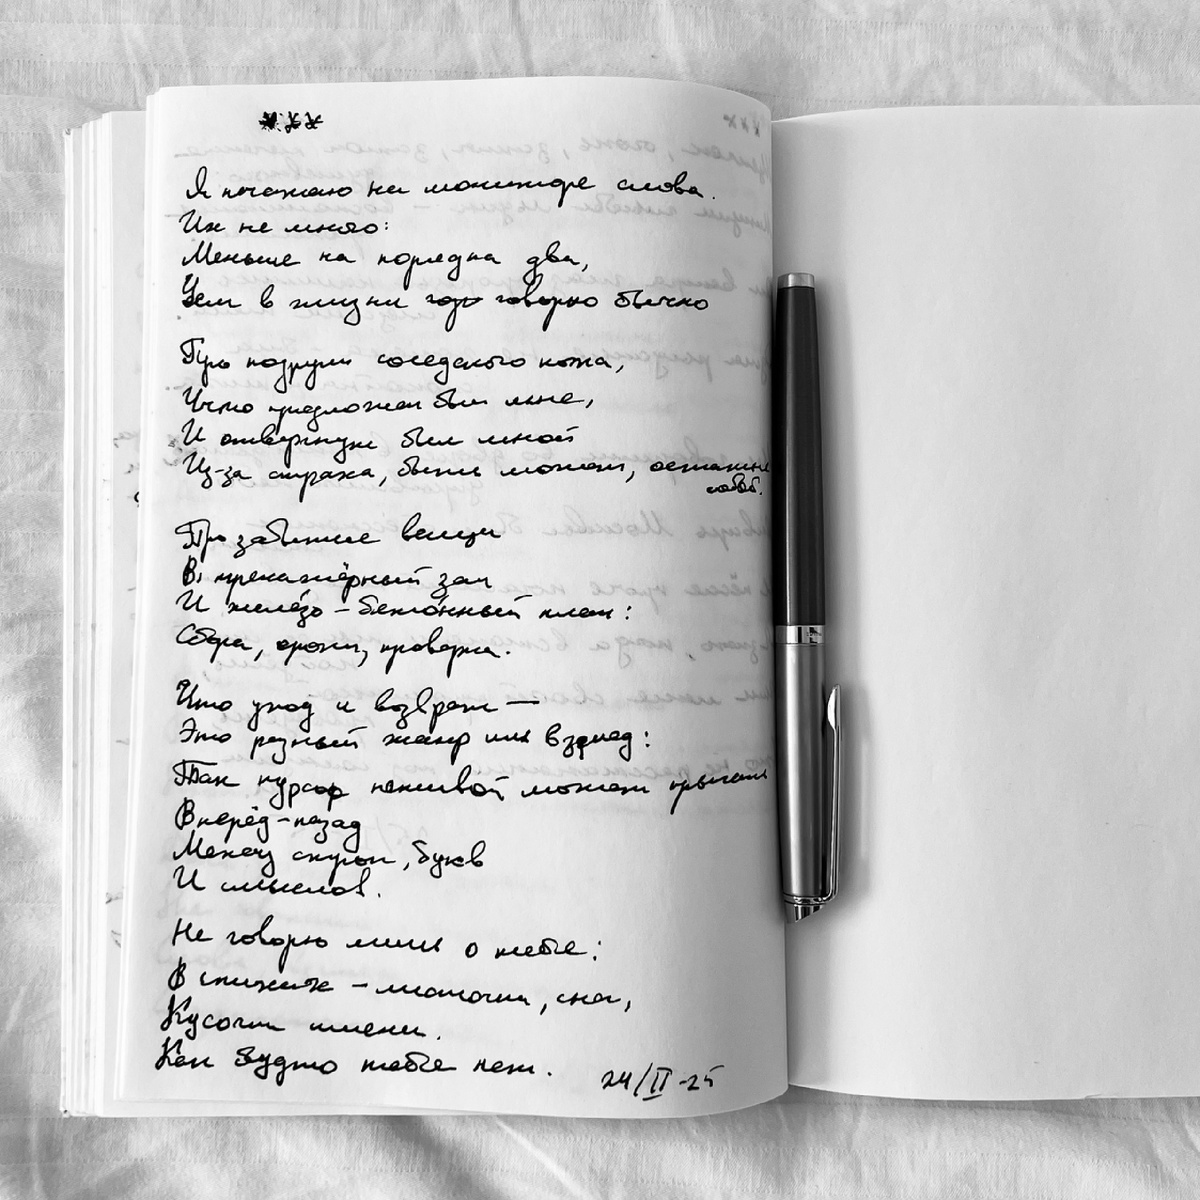 ***
Я печатаю на мониторе слова.
Их не много:
Меньше на порядка два,
Чем в жизни говорю обычно
Про подруги соседского ножа,
Что предложен был мне,
И отвергнут был мной
Из-за страха, быть может, остаться
собой.
Про забытые вещи
В тренажёрный зал
И железо-бетонный план:
Сбора, уроки, проверка.
Что уход и возврат —
Это разный жанр или взгляд:
Так курсор неживой может прыгать
Вперёд-назад
Между скупых букв
И смыслов.
Не говорю лишь о тебе:
В списках - мелочи, сны,
Кусочки имени.
Как будто тебя нет.
24/II-25